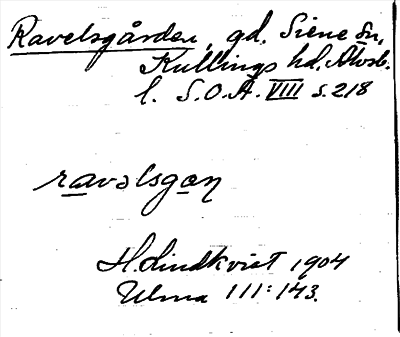 Ravelsgården, gd. Siene sn,
Kullings hd, Älvsb.
l. S.O.Ä. VIII s. 218
ravəlsgaɳ
H. Lindkvist 1904
Ulma 111:143.